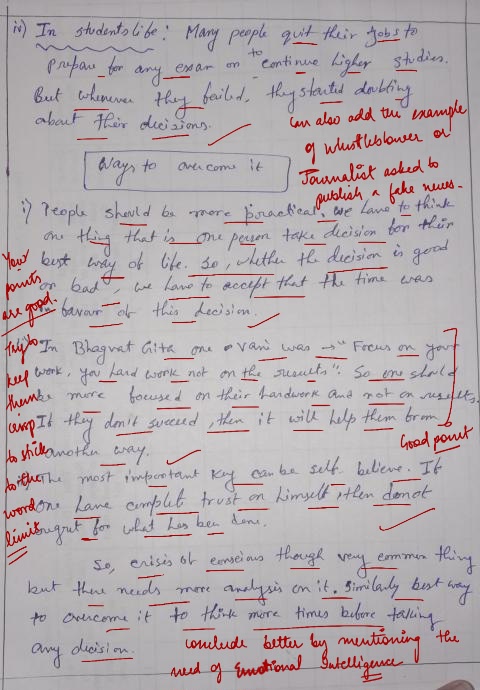 iv) In students life: Many people quit their jobs to
prepare for any exam or to continue higher studies.
But whenever they failed, they started doubting
about their decisions.
Can also add the example
of whistleblower or
Journalist asked to
publish a fake news.
Ways to overcome it
i) People should be more practical. We have to think
one thing that is one person take decision for their
best way of life. So, whether the decision is good
or bad, we have to accept that the time was
in favour of this decision.
Your
points
are good.
Try to
keep
them
crisp
to stick
to the
word
limit
In Bhagvat Gita one vani was → "Focus on your
work, you hard work not on the results". So one should
be more focused on their hardwork and not on results.
If they don't succeed, then it will help them from
another way.
Good point
The most important key can be self believe. If
one have complet trust on himself, then donot
regret for what has been done.
So, crisis of conscious though very common thing
but there needs more analysis on it. Similarly best way
to overcome it to think more times before taking
any decision.
Conclude better by mentioning the
need of Emotional Intelligence